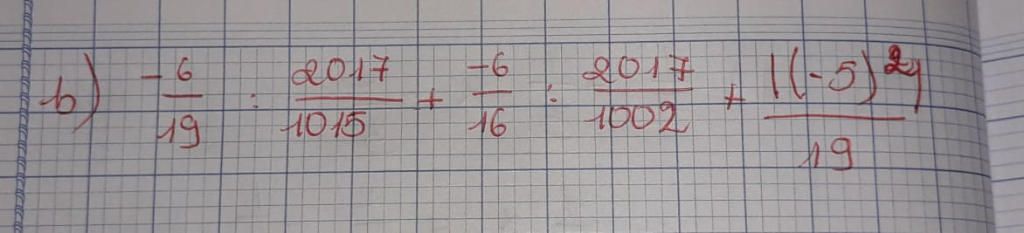 b) -6/19 : 2017/1015 + -6/16 : 2017/1002 + |(-5)²|/19